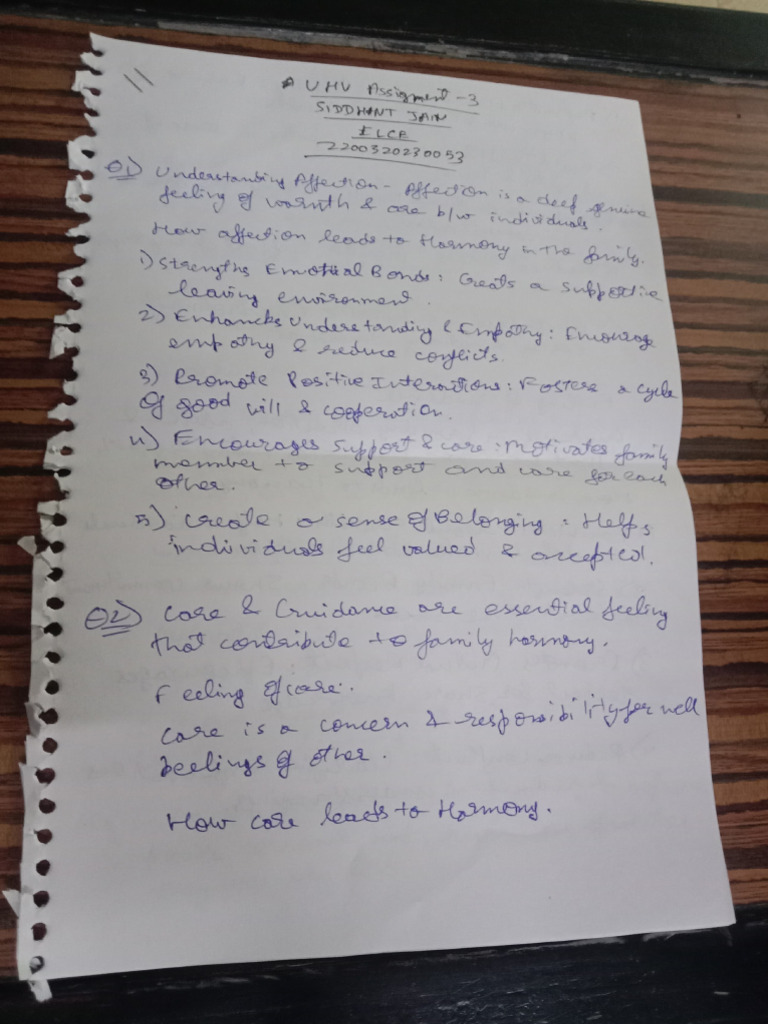 11
UHV Assigment - 3
SIDDHANT JAIN
ELCE
2200320230053
Q1) Understanding Affection - Affection is a deef genuine
feeling of warmth & care b/w individuals.
How affection leads to Harmony in the family.
1) Strengths Emotional Bonds : Creats a supportive
leaving environment.
2) Enhances Understanding & Empathy : Encourage
empathy & reduce conflicts.
3) Promote Positive Interactions : Fosters a cycle
of good will & cooperation.
4) Encourages support & care : Motivates family
member to support and care for each
other.
5) Create a sense of Belonging : Helps
individuals feel valued & accepted.
Q2) Care & Guidance are essential feeling
that contribute to family harmony.
Feeling of care :
Care is a concern & responsibility for well
beelings of other.
How care leads to Harmony.